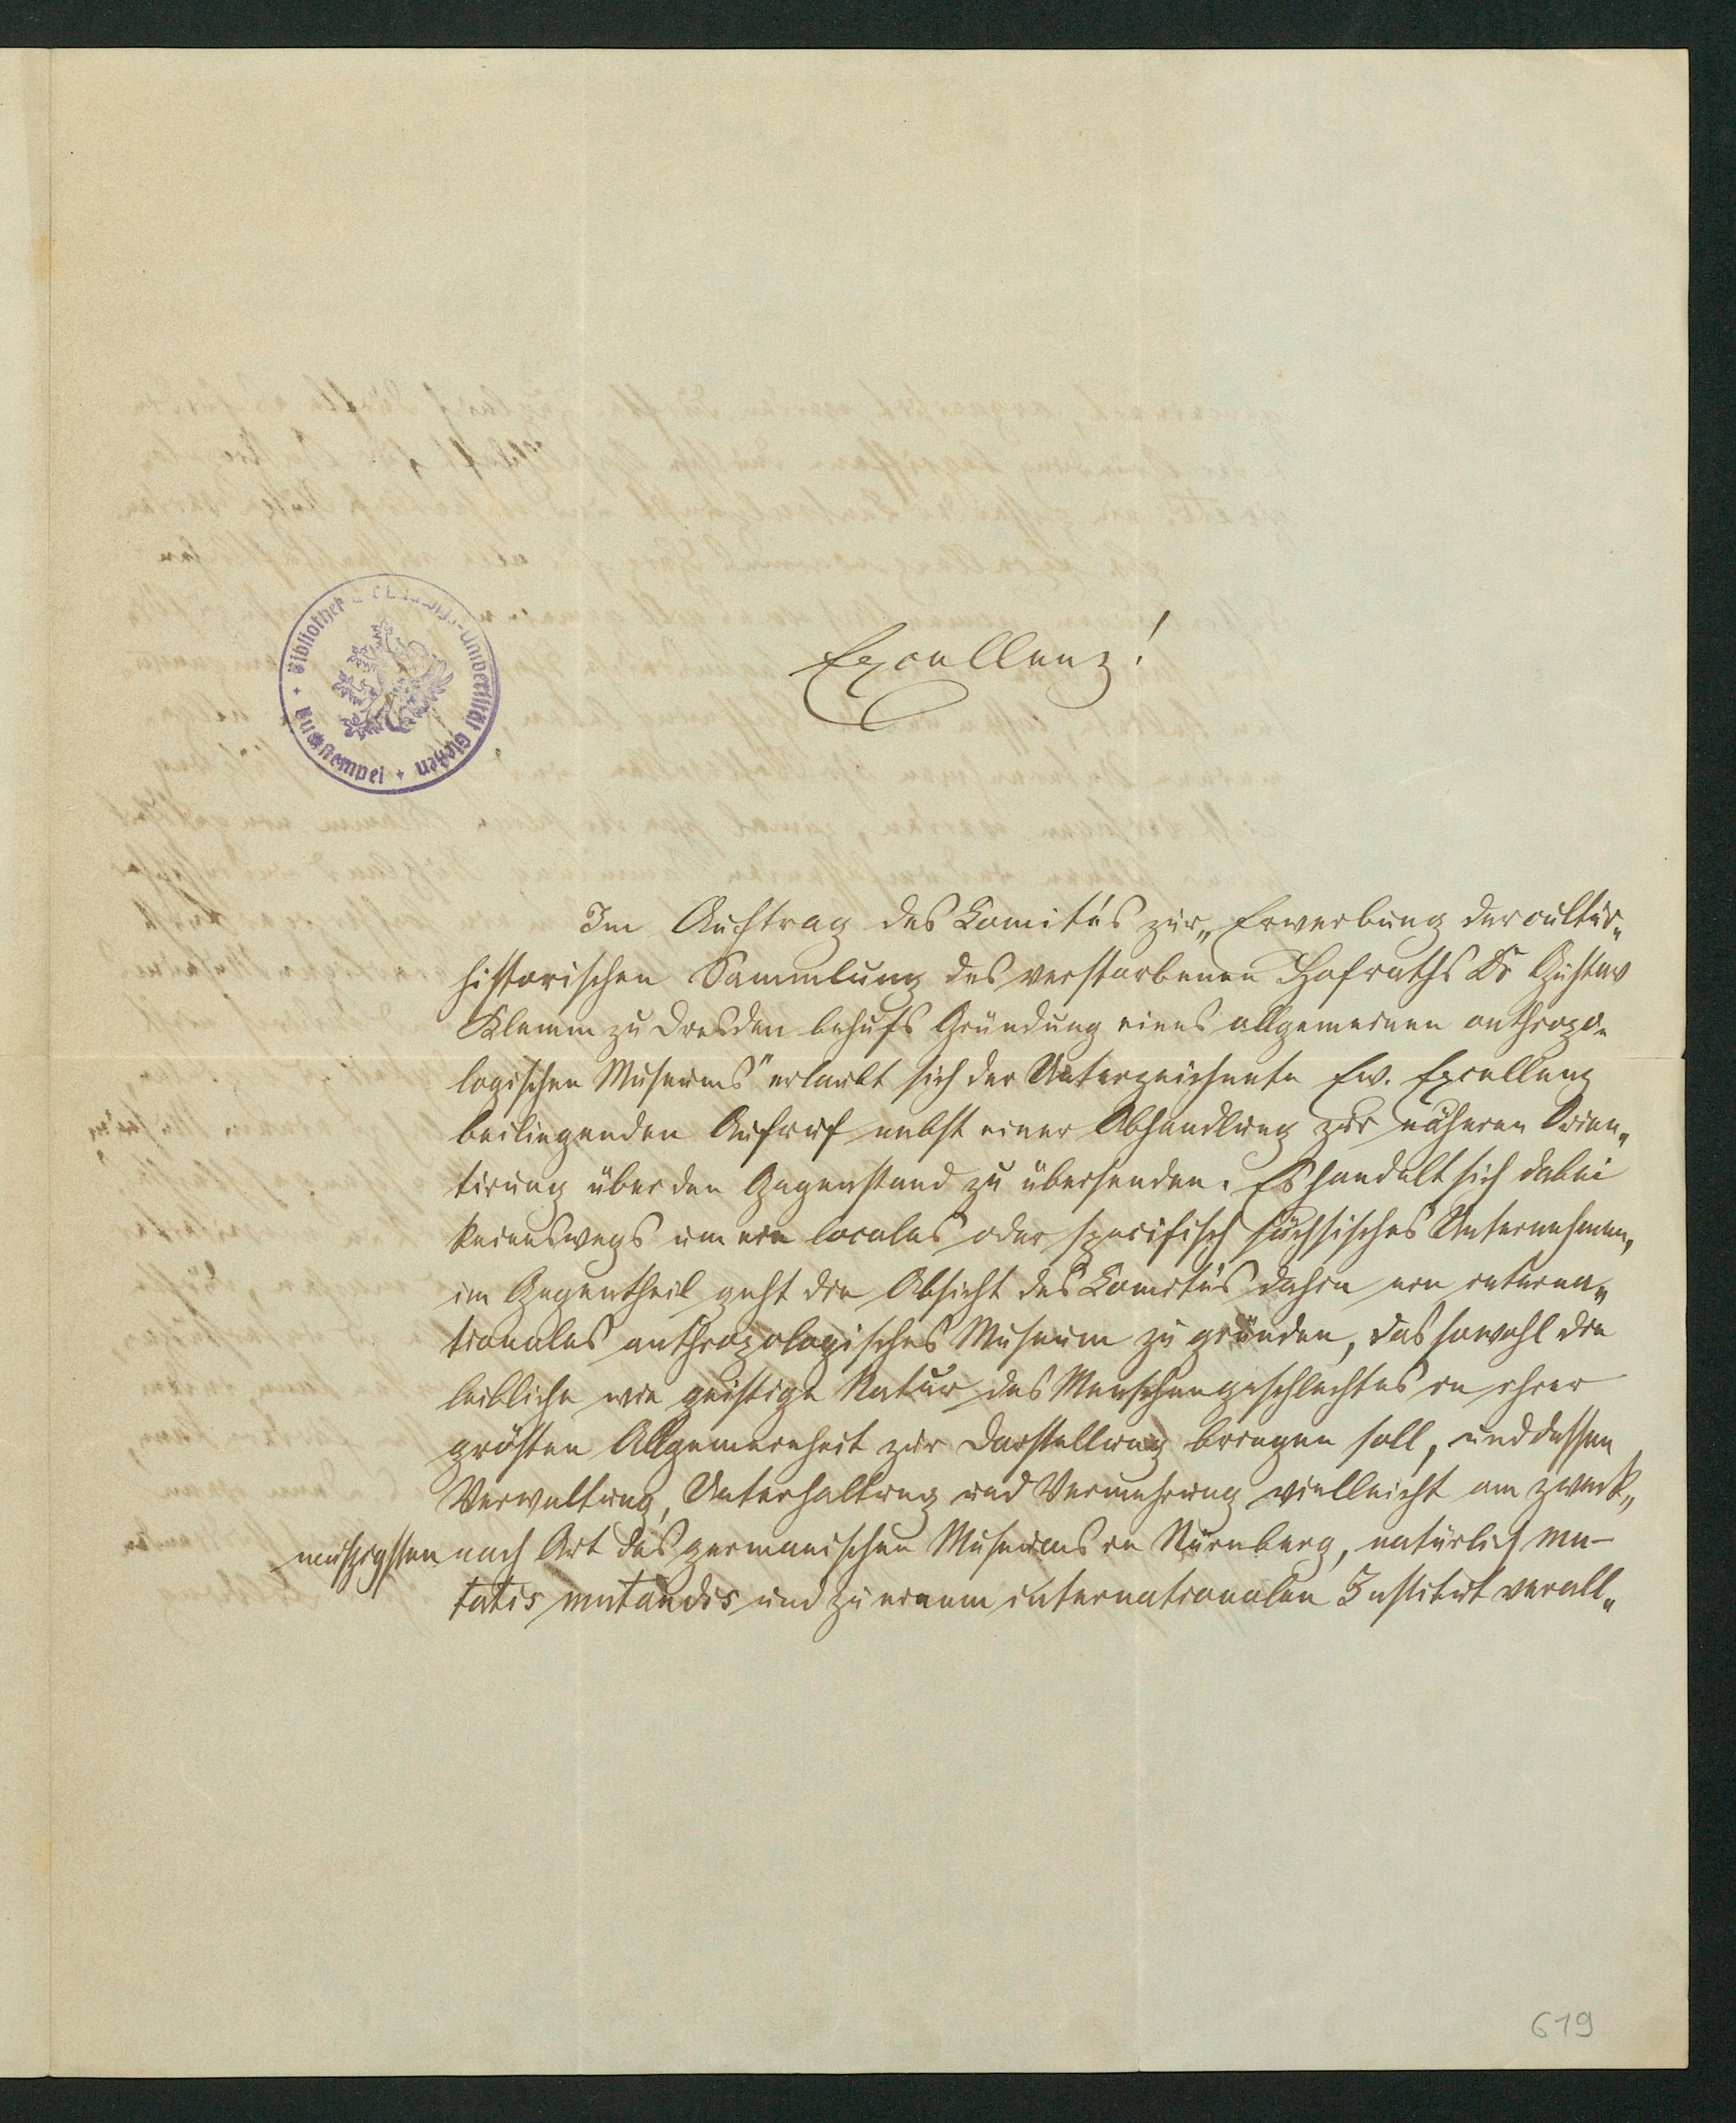 Excellenz!
Im Auftrag des Comités zur „Erwerbung der cultur„
historischen Sammlung des verstorbenen Hofraths Dr Gustav
Klemm zu Dresden behufs Gründung eines allgemeinen anthropo„
logischen Museums" erlaubt sich der Unterzeichnete Ew. Excellenz
beiliegenden Aufruf nebst einer Abhandlung zur näheren Orien„
tirung über den Gegenstand zu übersenden. Es handelt sich dabei
keineswegs um ein locales oder specifisch sächsisches Unternehmen,
im Gegentheil geht die Absicht des Comités dahin ein interna„
tionales anthropologisches Museum zu gründen, das sowohl die
leibliche wie geistige Natur des Menschengeschlechtes in ihrer
größten Allgemeinheit zur Darstellung bringen soll, und dessen
Verwaltung, Unterhaltung und Vermehrung vielleicht am zweck„
mäßigsten nach Art des germanischen Museums in Nürnberg, natürlich mu-
tatis mutandis und zu einem internationalen Institut verall„
Bibliothek d. Ludwigs-Universität Gießen
619